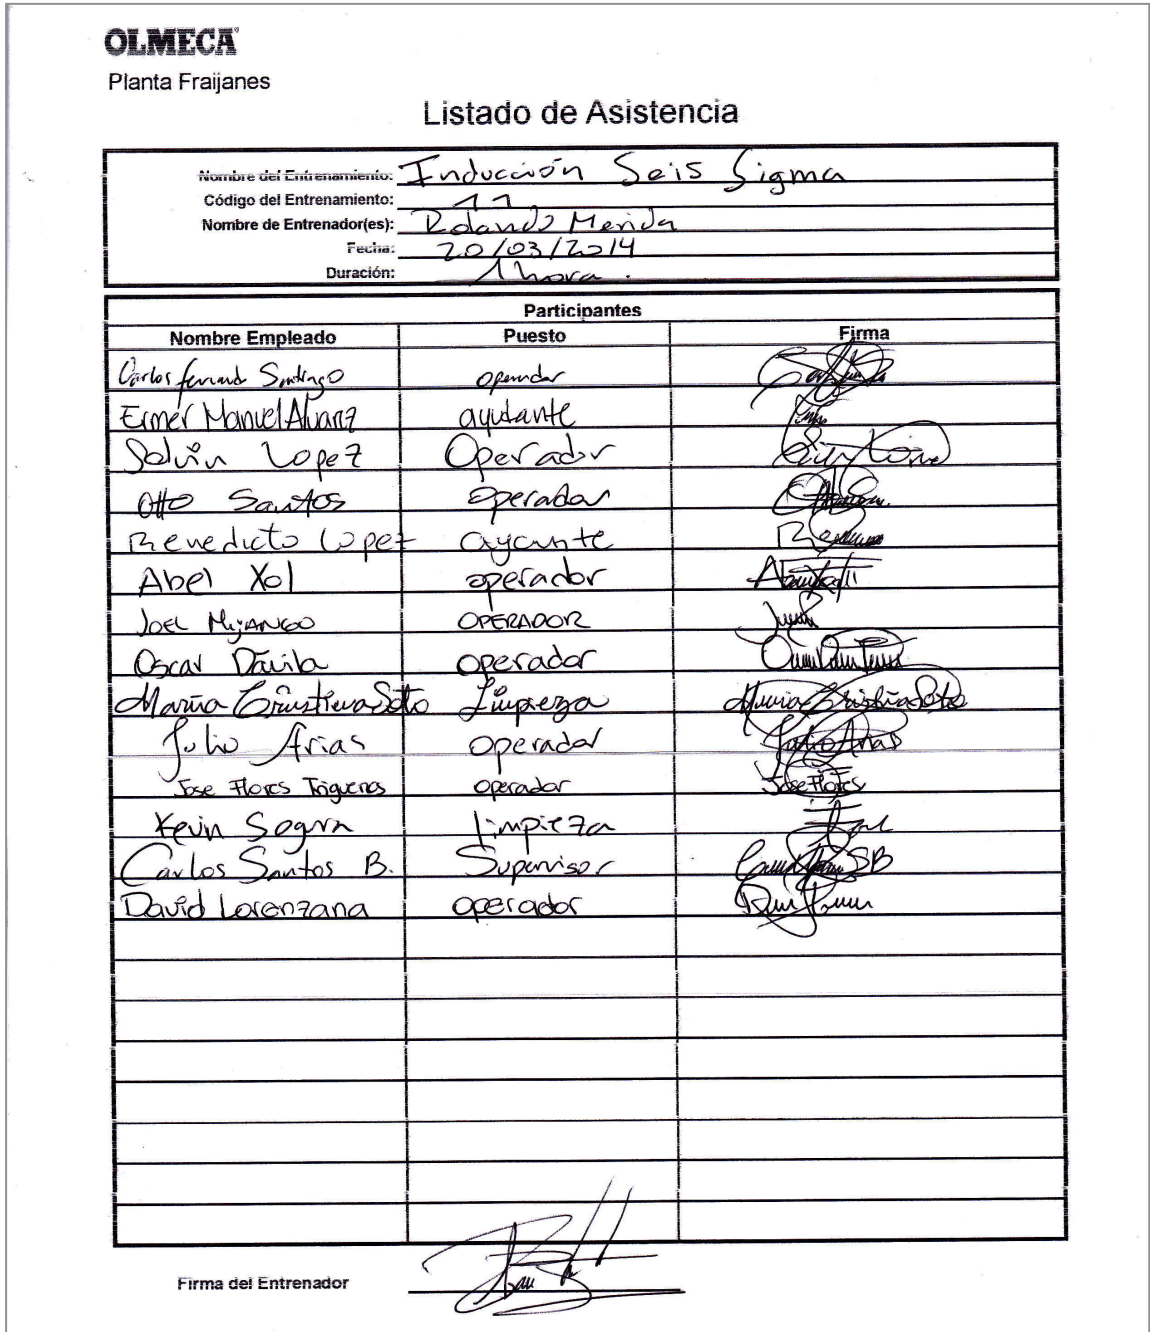 OLMECA
Planta Fraijanes
Listado de Asistencia
Nombre del Entrenamiento: Inducción Seis Sigma
Código del Entrenamiento: 11
Nombre de Entrenador(es): Rolando Merida
Fecha: 20/03/2014
Duración: 1 hora.
Participantes
Nombre Empleado Puesto Firma
Carlos Santiago operador
Ermer Manuel ayudante
Selvin Lopez Operador
Otto Santos operador
Benedicto Lopez
Abel Xol operador
JOEL MIJANGO OPERADOR
Oscar Dávila operador
Maria Soto Limpieza Maria Cristina Soto
Julio Arias operador Julio Arias
Jose Flores Trigueros operador Jose Flores
Kevin limpieza
Carlos Santos B. Supervisor SB
David Lorenzana operador
Firma del Entrenador